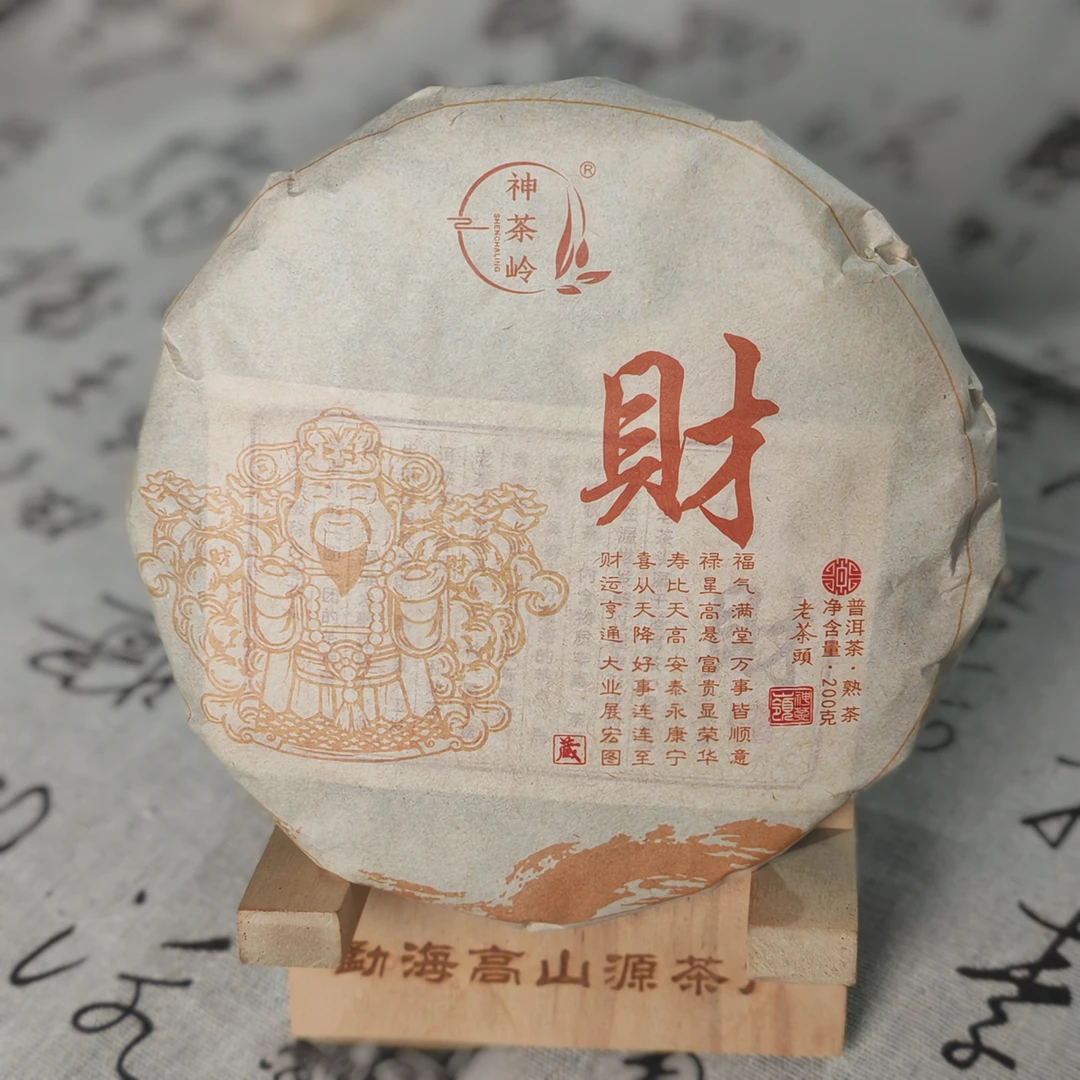 神茶岭
SHENCHALING
®
財
福气满堂 万事皆顺意
禄星高悬 富贵显荣华
寿比天高 安泰永康宁
喜从天降 好事连连至
财运亨通 大业展宏图
藏
普洱茶·熟茶
净含量·200克
老茶頭
财
财
勐海高山源茶